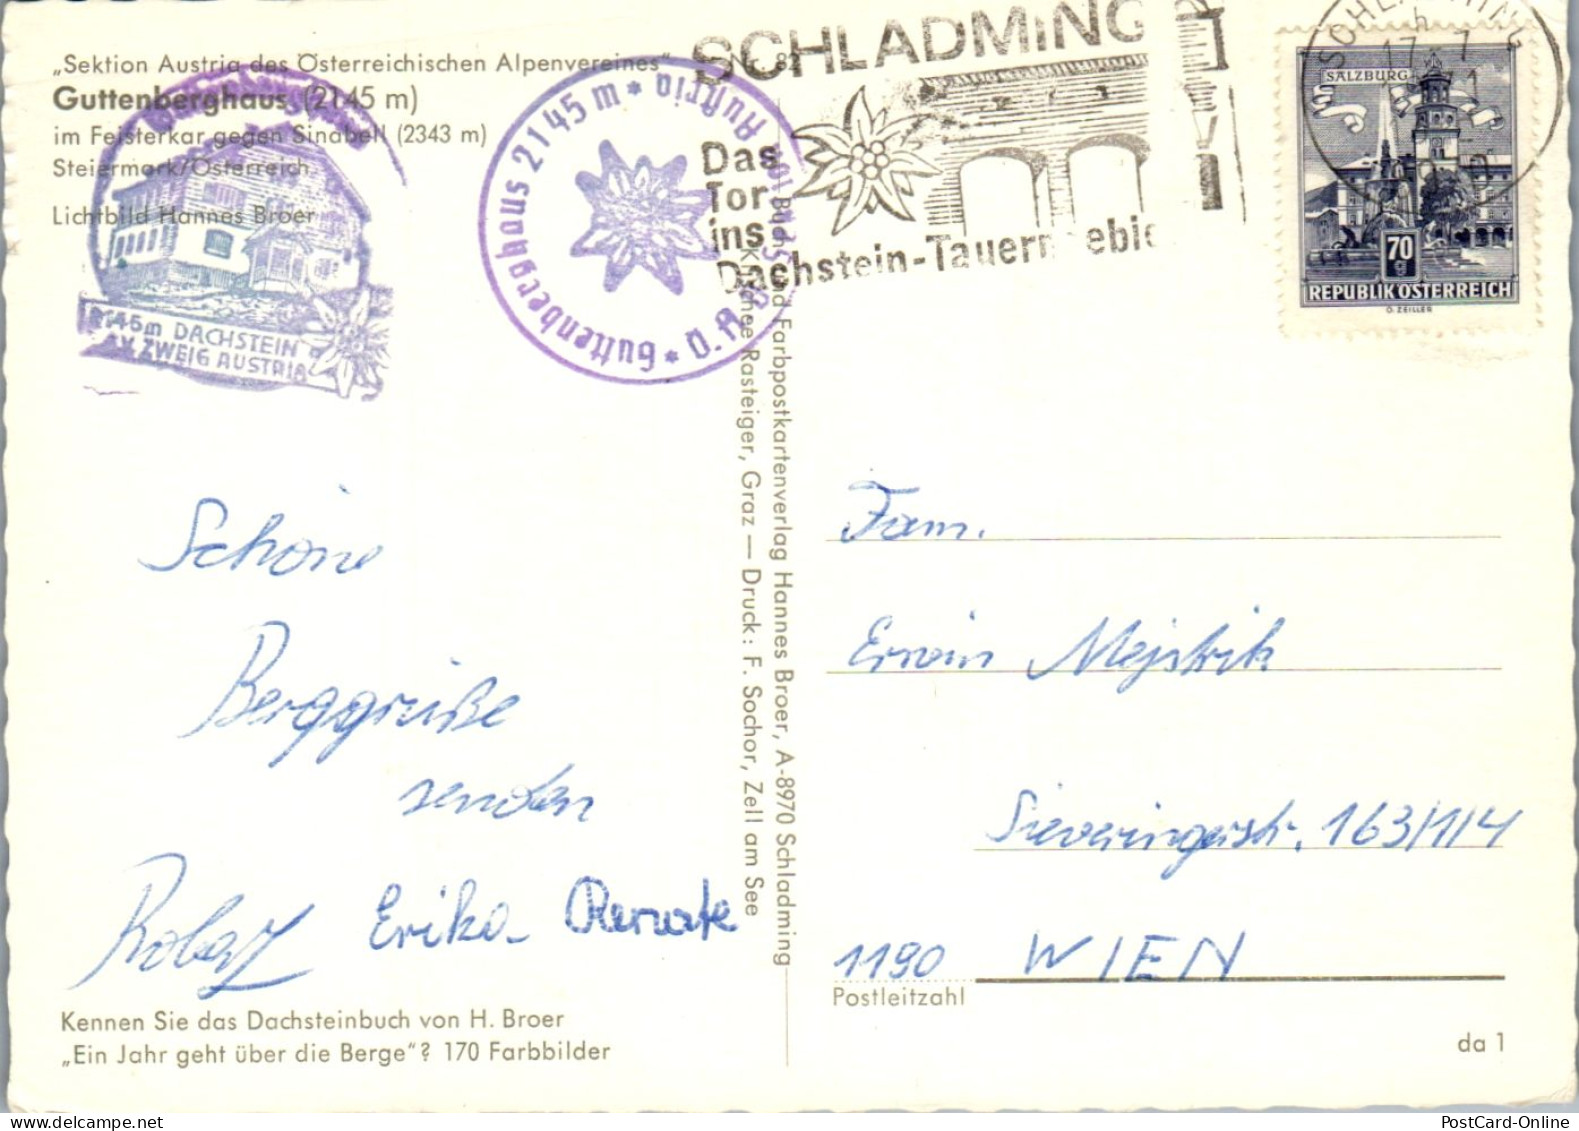 „Sektion Austria des Österreichischen Alpenvereines" Nr. 82
Guttenberghaus (2145 m)
im Feisterkar gegen Sinabell (2343 m)
Steiermark/Österreich
Lichtbild Hannes Broer
2145m DACHSTEIN
A.V. ZWEIG AUSTRIA
Guttenberghaus 2145 m * Austria
SCHLADMING
Das
Tor
ins
Dachstein-Tauerngebiet
SCHLADMING
17. 7
SALZBURG
70
g
REPUBLIK ÖSTERREICH
O. ZEILLER
Buch- und Farbpostkartenverlag Hannes Broer, A-8970 Schladming
Klischee Rasteiger, Graz — Druck: F. Sochor, Zell am See
Schöne
Berggrüße
senden
Robert Erika Renate
Fam.
Erwin Mejstrik
Sieveringerstr. 163/1/4
1190 WIEN
Postleitzahl
Kennen Sie das Dachsteinbuch von H. Broer
„Ein Jahr geht über die Berge"? 170 Farbbilder
da 1
PostCard-Online